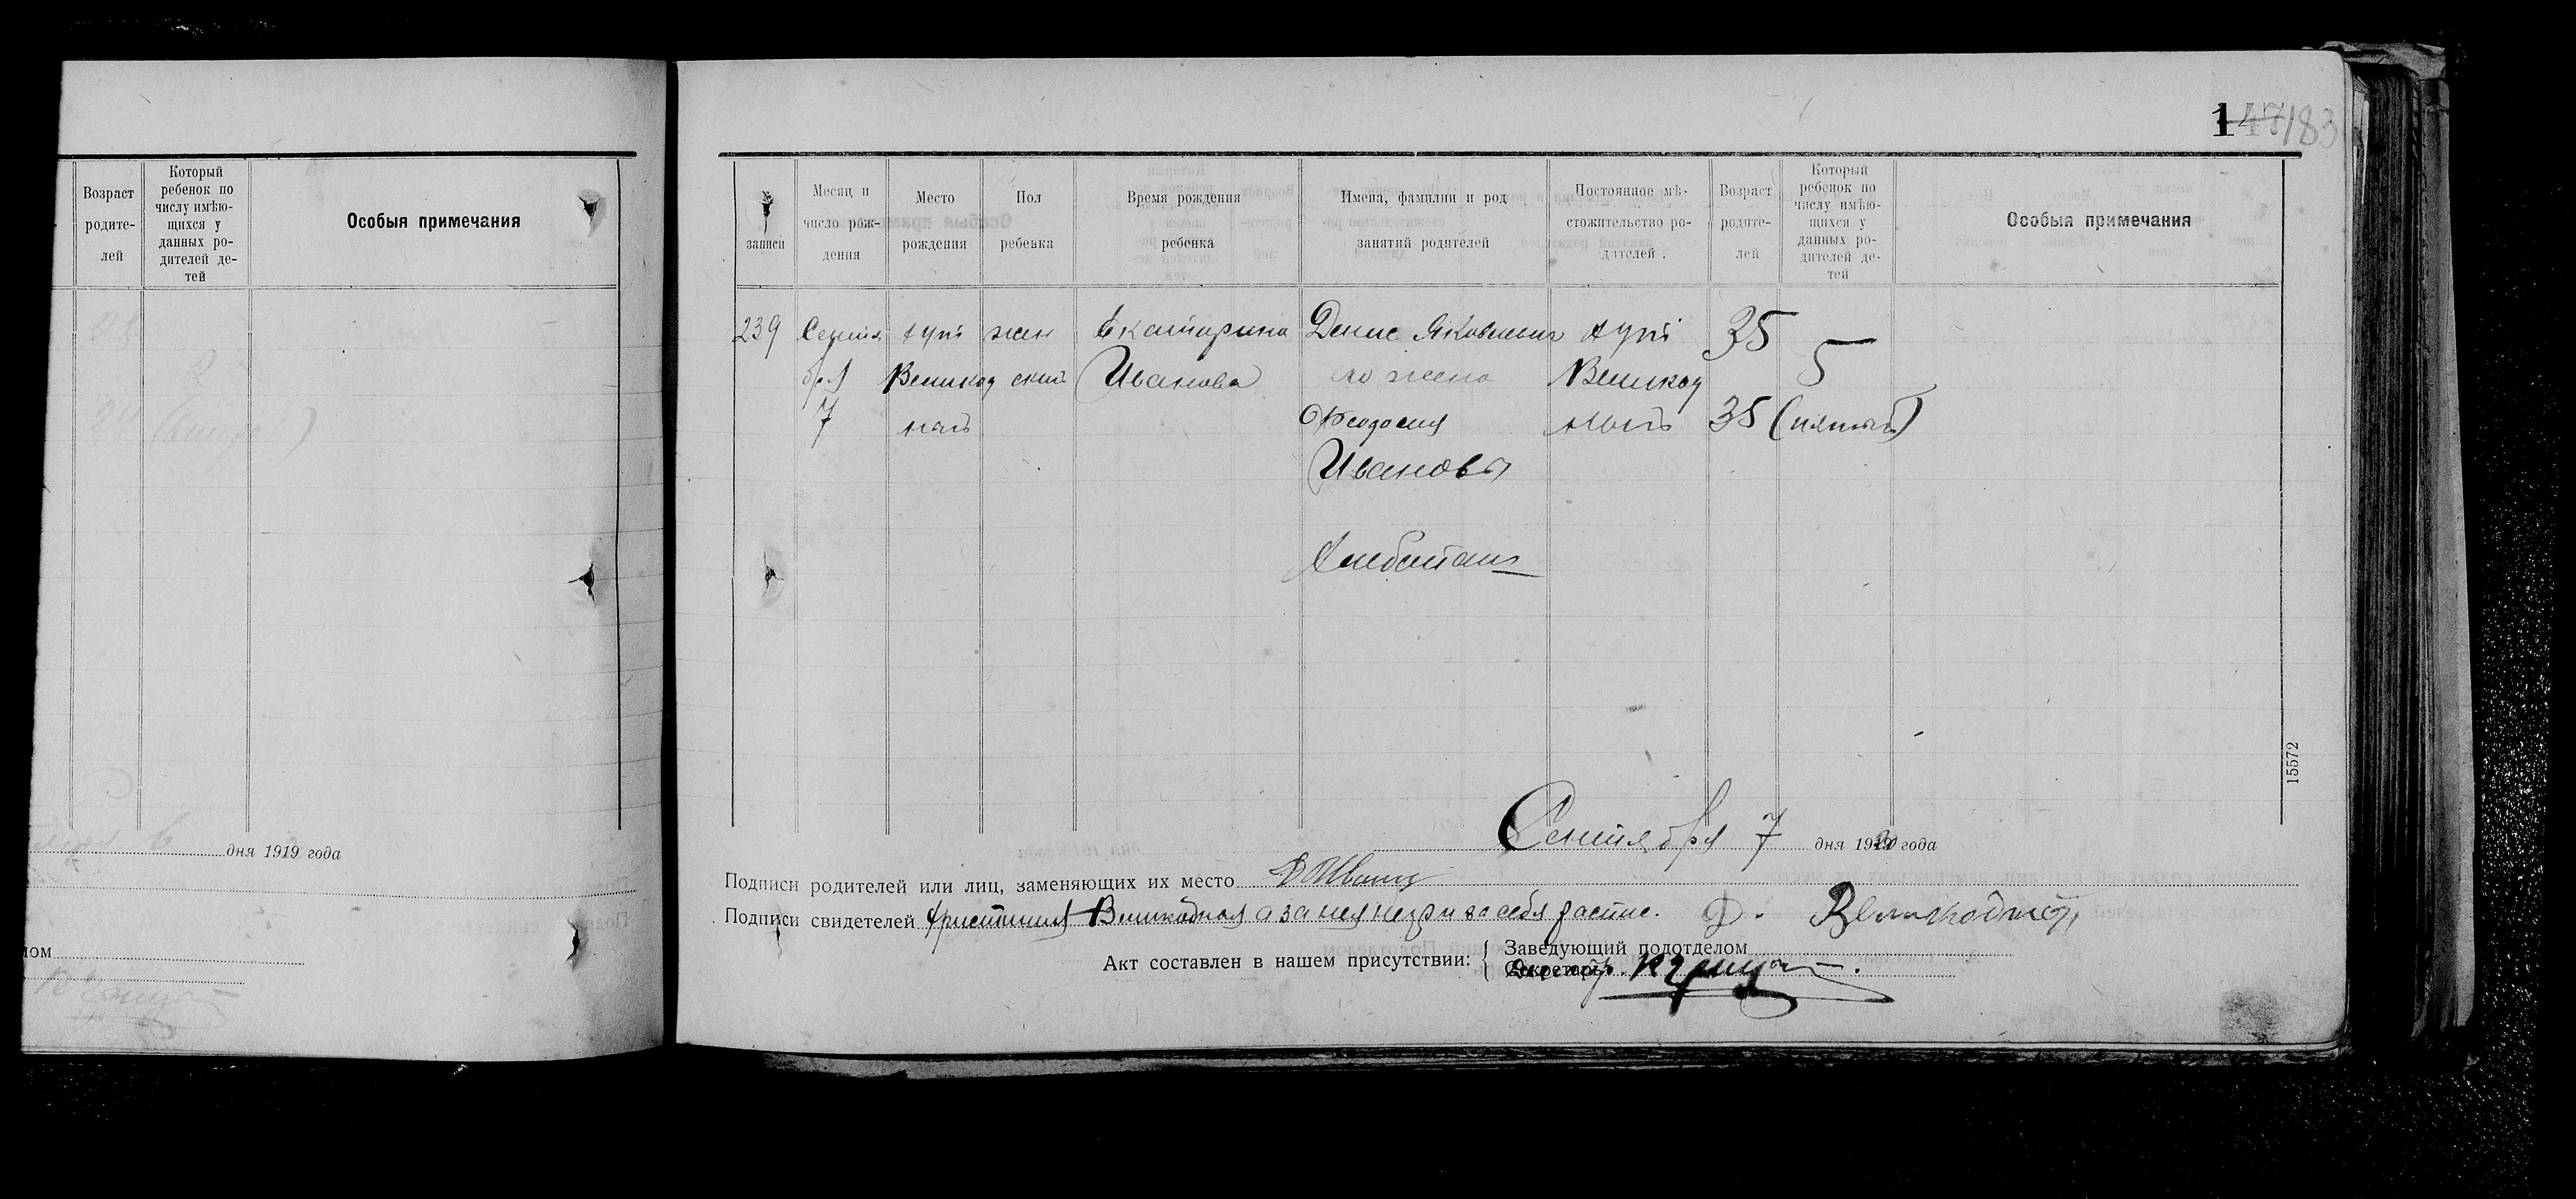 147 183
Возраст родите-лей
Который ребенок по числу имѣю-щихся у данных ро-дителей де-тей
Особыя примечания
дня 1919 года
№ записи
Месяц и число рож-дения
Место рождения
Пол ребенка
Время рождения ребенка
Имена, фамилии и род занятий родителей
Постоянное мѣ-стожительство ро-дителей.
Возраст родите-лей
Который ребенок по числу имѣю-щихся у данных ро-дителей де-тей
Особыя примечания
239 Сентя хут жен Екатарина Денис Яковлевич хут 35
бря Великод ский Иванова жена Великод 5
7 Феодосия 35 (пятый)
Ивановы
15572
Сентября 7 дня 1920 года
Подписи родителей или лиц, заменяющих их место Д Иванов
Подписи свидетелей Христиния Великодная а за нея негр и за себя распис. Ф. Великодный
Акт составлен в нашем присутствии: Заведующий подотделом
Секретарь